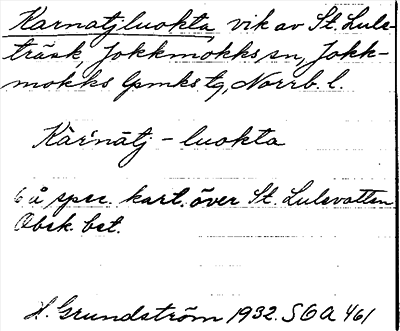 Karnatjluokta vik av St. Lule-
träsk, Jokkmokks sn, Jokk-
mokks lpmks tg, Norrb. l.
Kàr'nātj - luokta
6 å spec. kart. över St. Lulevatten
Obek. bet.
H. Grundström 1932. SOA 461